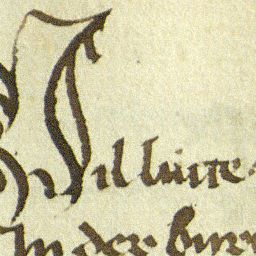 Vil lúite
In der bur